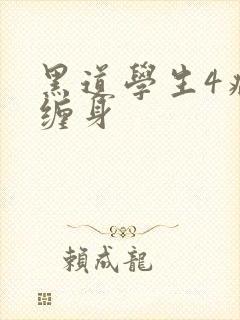 黑道學生4
缠身
賴成龍